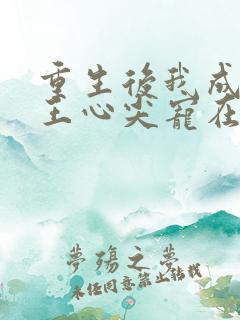 重生後我成
王心尖寵在
夢殤之夢
未經同意禁止轉載